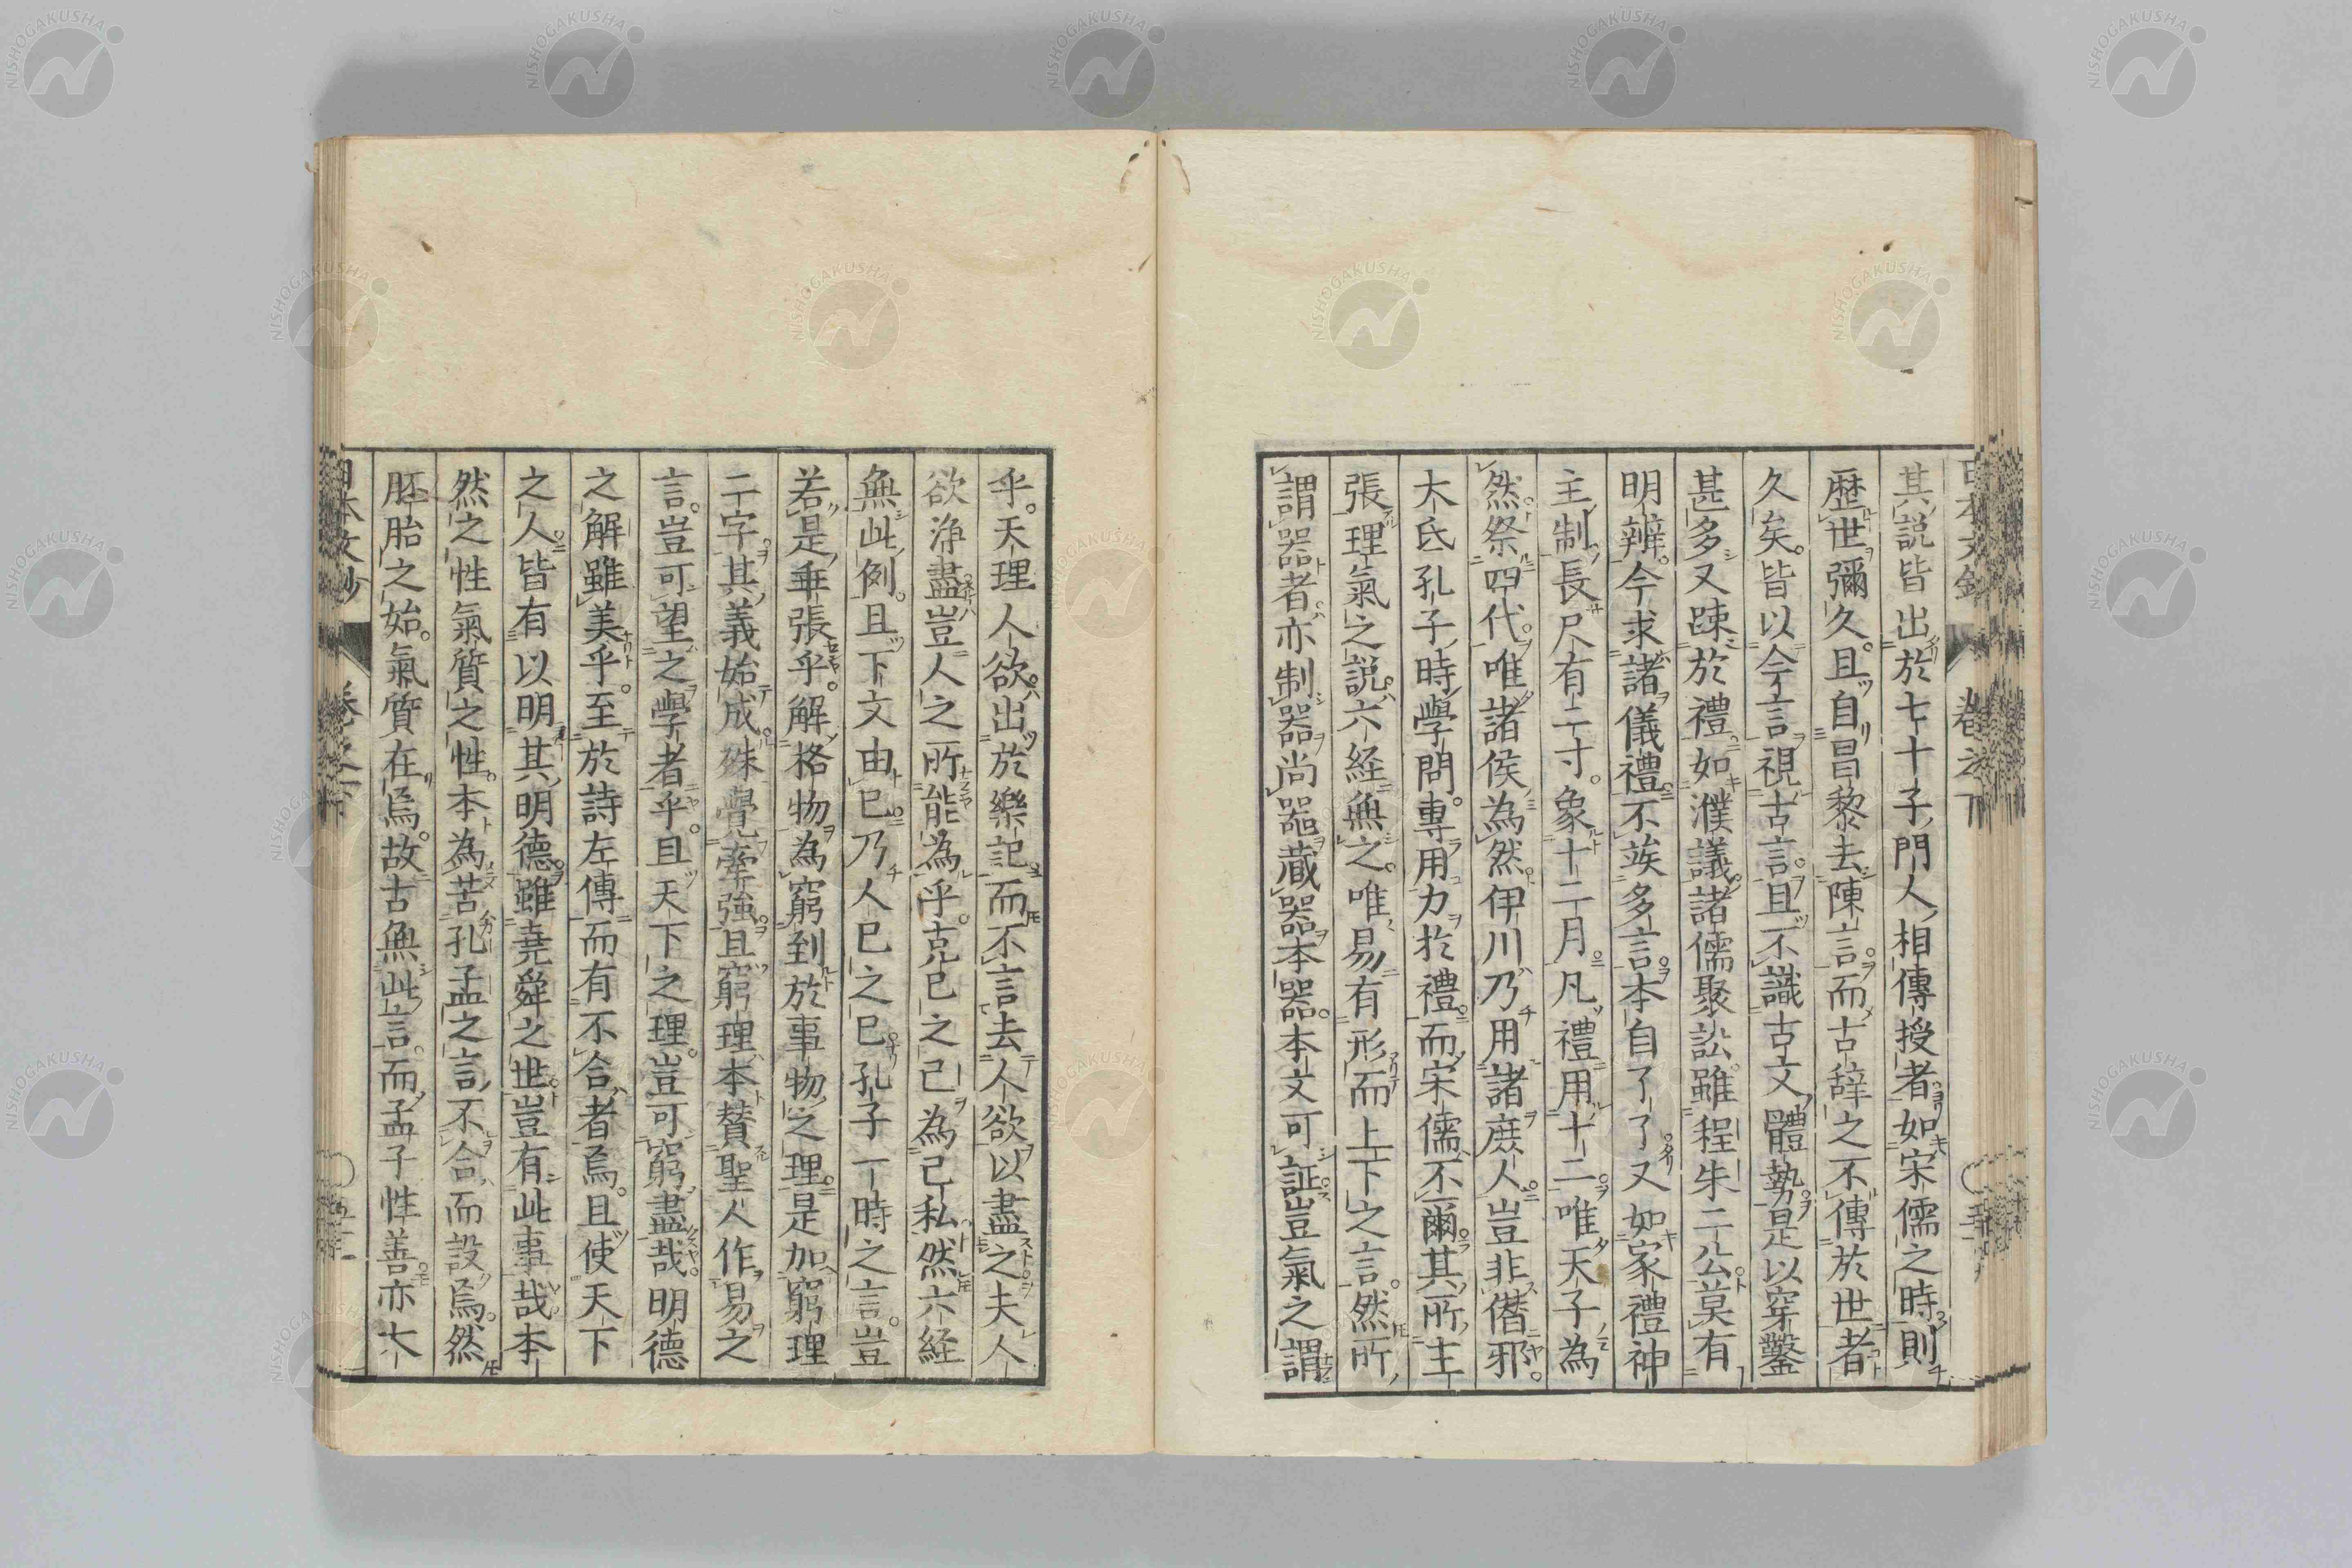 其說皆出於七十子門人相傳授者如宋儒之時則
歷世彌久且自昌黎去陳言而古辞之不傳於世者
久矣。皆以今言視古言。且不識古文體勢是以穿鑿
甚多又踈於禮如濮議諸儒聚訟雖程朱二公莫有
明辨。今求諸儀禮不竢多言本自了了又如家禮神
主制長尺有二寸。象十二月凡禮用十二唯天子為
然祭四代。唯諸侯為然伊川乃用諸庶人豈非僭邪。
大氐孔子時學問。專用力於禮而宋儒不爾其所主
張理氣之說六経無之。唯易有形而上下之言。然所
謂器者亦制器尚器藏器本器。本文可証豈氣之謂
乎。天理人欲出於樂記而不言去人欲以盡之夫人
欲浄盡豈人之所能為乎。克己之己為己私然六経
無此例。且下文由己乃人己之己孔子一時之言。豈
若是乖張乎。解格物為窮到於事物之理是加窮理
二字其義始成殊覺牽強且窮理本賛聖人作易之
言。豈可望之學者乎。且天下之理。豈可窮盡哉。明德
之解雖美乎。至於詩左傳而有不合者焉。且使天下
之人皆有以明其明德雖堯舜之世豈有此事哉本
然之性氣質之性。本為苦孔孟之言不合而設焉。然
胚胎之始。氣質在焉。故古無此言。而孟子性善亦大
日本文鈔
卷之下